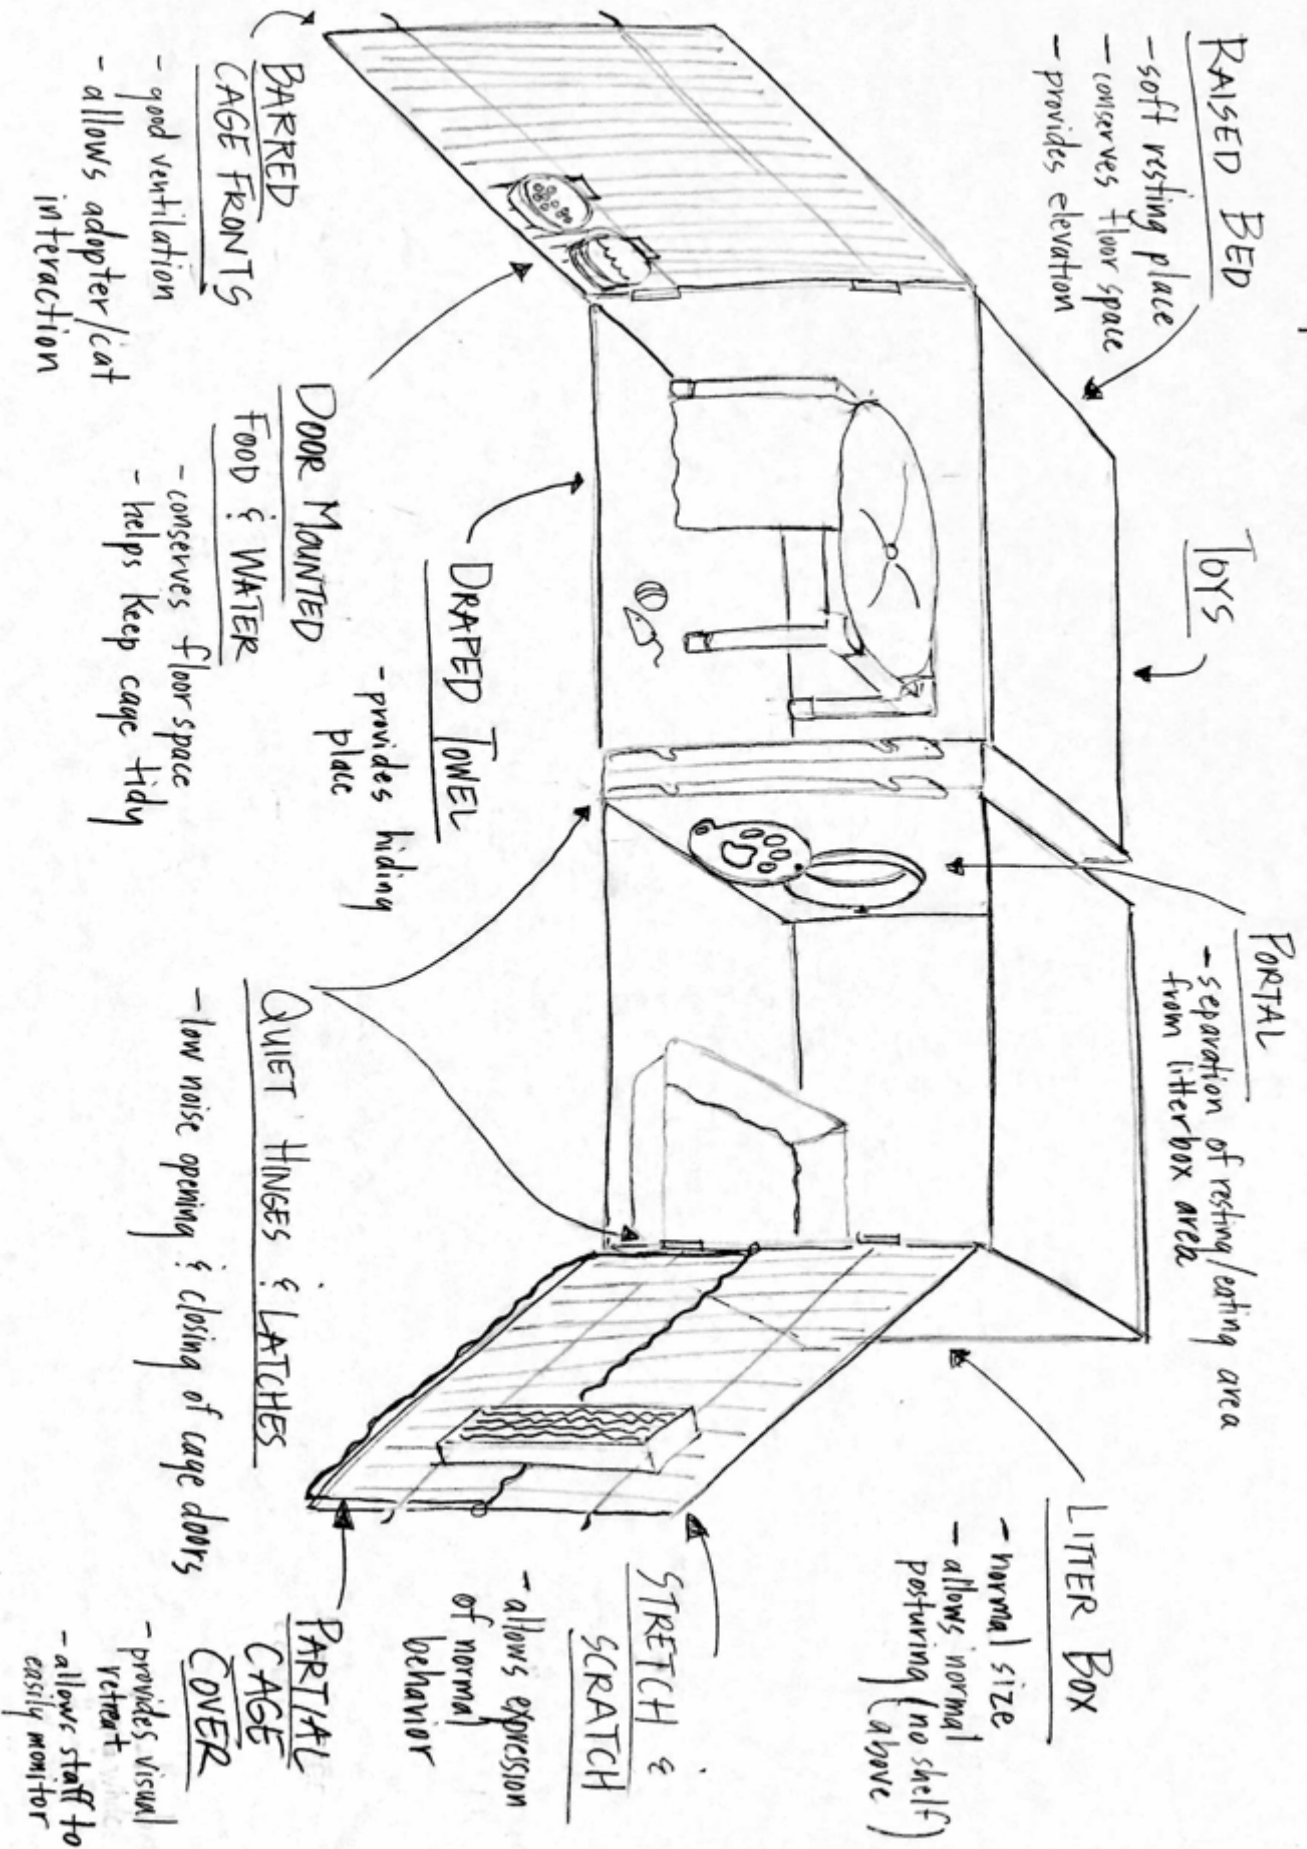 RAISED BED
- soft resting place
- conserves floor space
- provides elevation
TOYS
PORTAL
- separation of resting/eating area
from litterbox area
LITTER BOX
- normal size
- allows normal
posturing (no shelf
above)
BARRED
CAGE FRONTS
- good ventilation
- allows adopter/cat
interaction
DOOR MOUNTED
FOOD & WATER
- conserves floor space
- helps keep cage tidy
DRAPED TOWEL
- provides hiding
place
QUIET HINGES & LATCHES
- low noise opening & closing of cage doors
STRETCH &
SCRATCH
- allows expression
of normal
behavior
PARTIAL
CAGE
COVER
- provides visual
retreat
- allows staff to
easily monitor